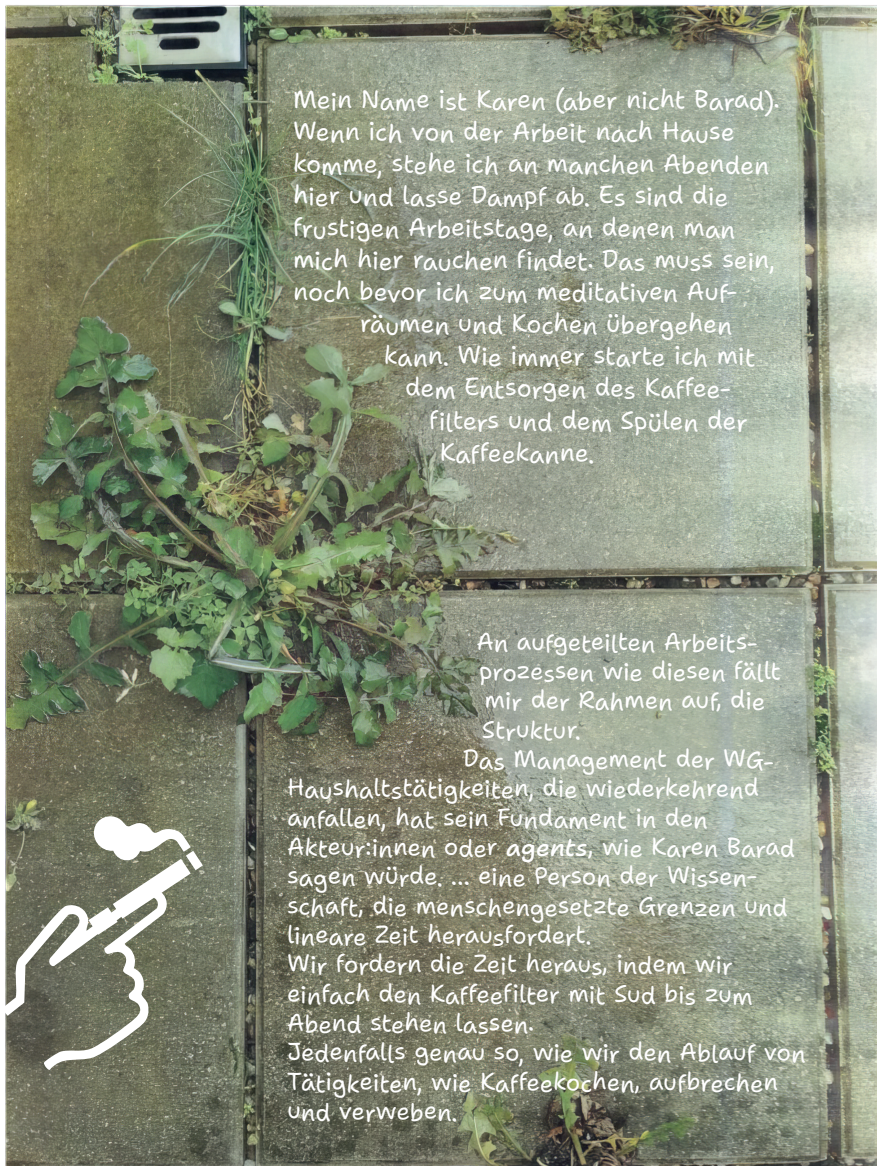 Mein Name ist Karen (aber nicht Barad).
Wenn ich von der Arbeit nach Hause
komme, stehe ich an manchen Abenden
hier und lasse Dampf ab. Es sind die
frustigen Arbeitstage, an denen man
mich hier rauchen findet. Das muss sein,
noch bevor ich zum meditativen Auf-
räumen und Kochen übergehen
kann. Wie immer starte ich mit
dem Entsorgen des Kaffee-
filters und dem Spülen der
Kaffeekanne.
An aufgeteilten Arbeits-
prozessen wie diesen fällt
mir der Rahmen auf, die
Struktur.
Das Management der WG-
Haushaltstätigkeiten, die wiederkehrend
anfallen, hat sein Fundament in den
Akteur:innen oder agents, wie Karen Barad
sagen würde. ... eine Person der Wissen-
schaft, die menschengesetzte Grenzen und
lineare Zeit herausfordert.
Wir fordern die Zeit heraus, indem wir
einfach den Kaffeefilter mit Sud bis zum
Abend stehen lassen.
Jedenfalls genau so, wie wir den Ablauf von
Tätigkeiten, wie Kaffeekochen, aufbrechen
und verweben.